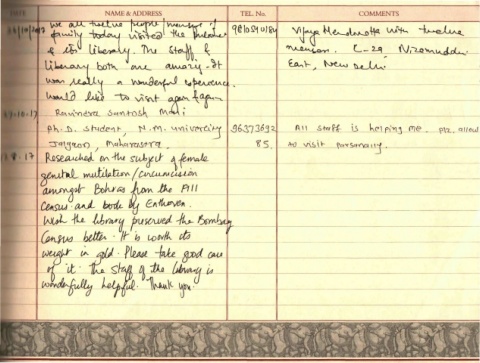 DATE NAME & ADDRESS TEL. No. COMMENTS
we all twelve people/members of
family today visited the
& its liberary. The staff &
liberary both are amazing. It
was really a wonderful experience.
would like to visit again & again
Vijay with twelve
Nizamuddin
East, New Delhi
Ravindra Santosh Mali
Ph.D. student, N.M. university
Jalgaon,
96373692
85.
All staff is helping me. plz. allow
to visit personally.
Researched on the subject of female
genital mutilation/circumcision
amongst Bohras from the
Census and book by Enthoven.
Wish the library preserved the Bombay
Census better. It is worth its
weight in gold. Please take good care
of it. The staff of the library is
wonderfully helpful. Thank you.